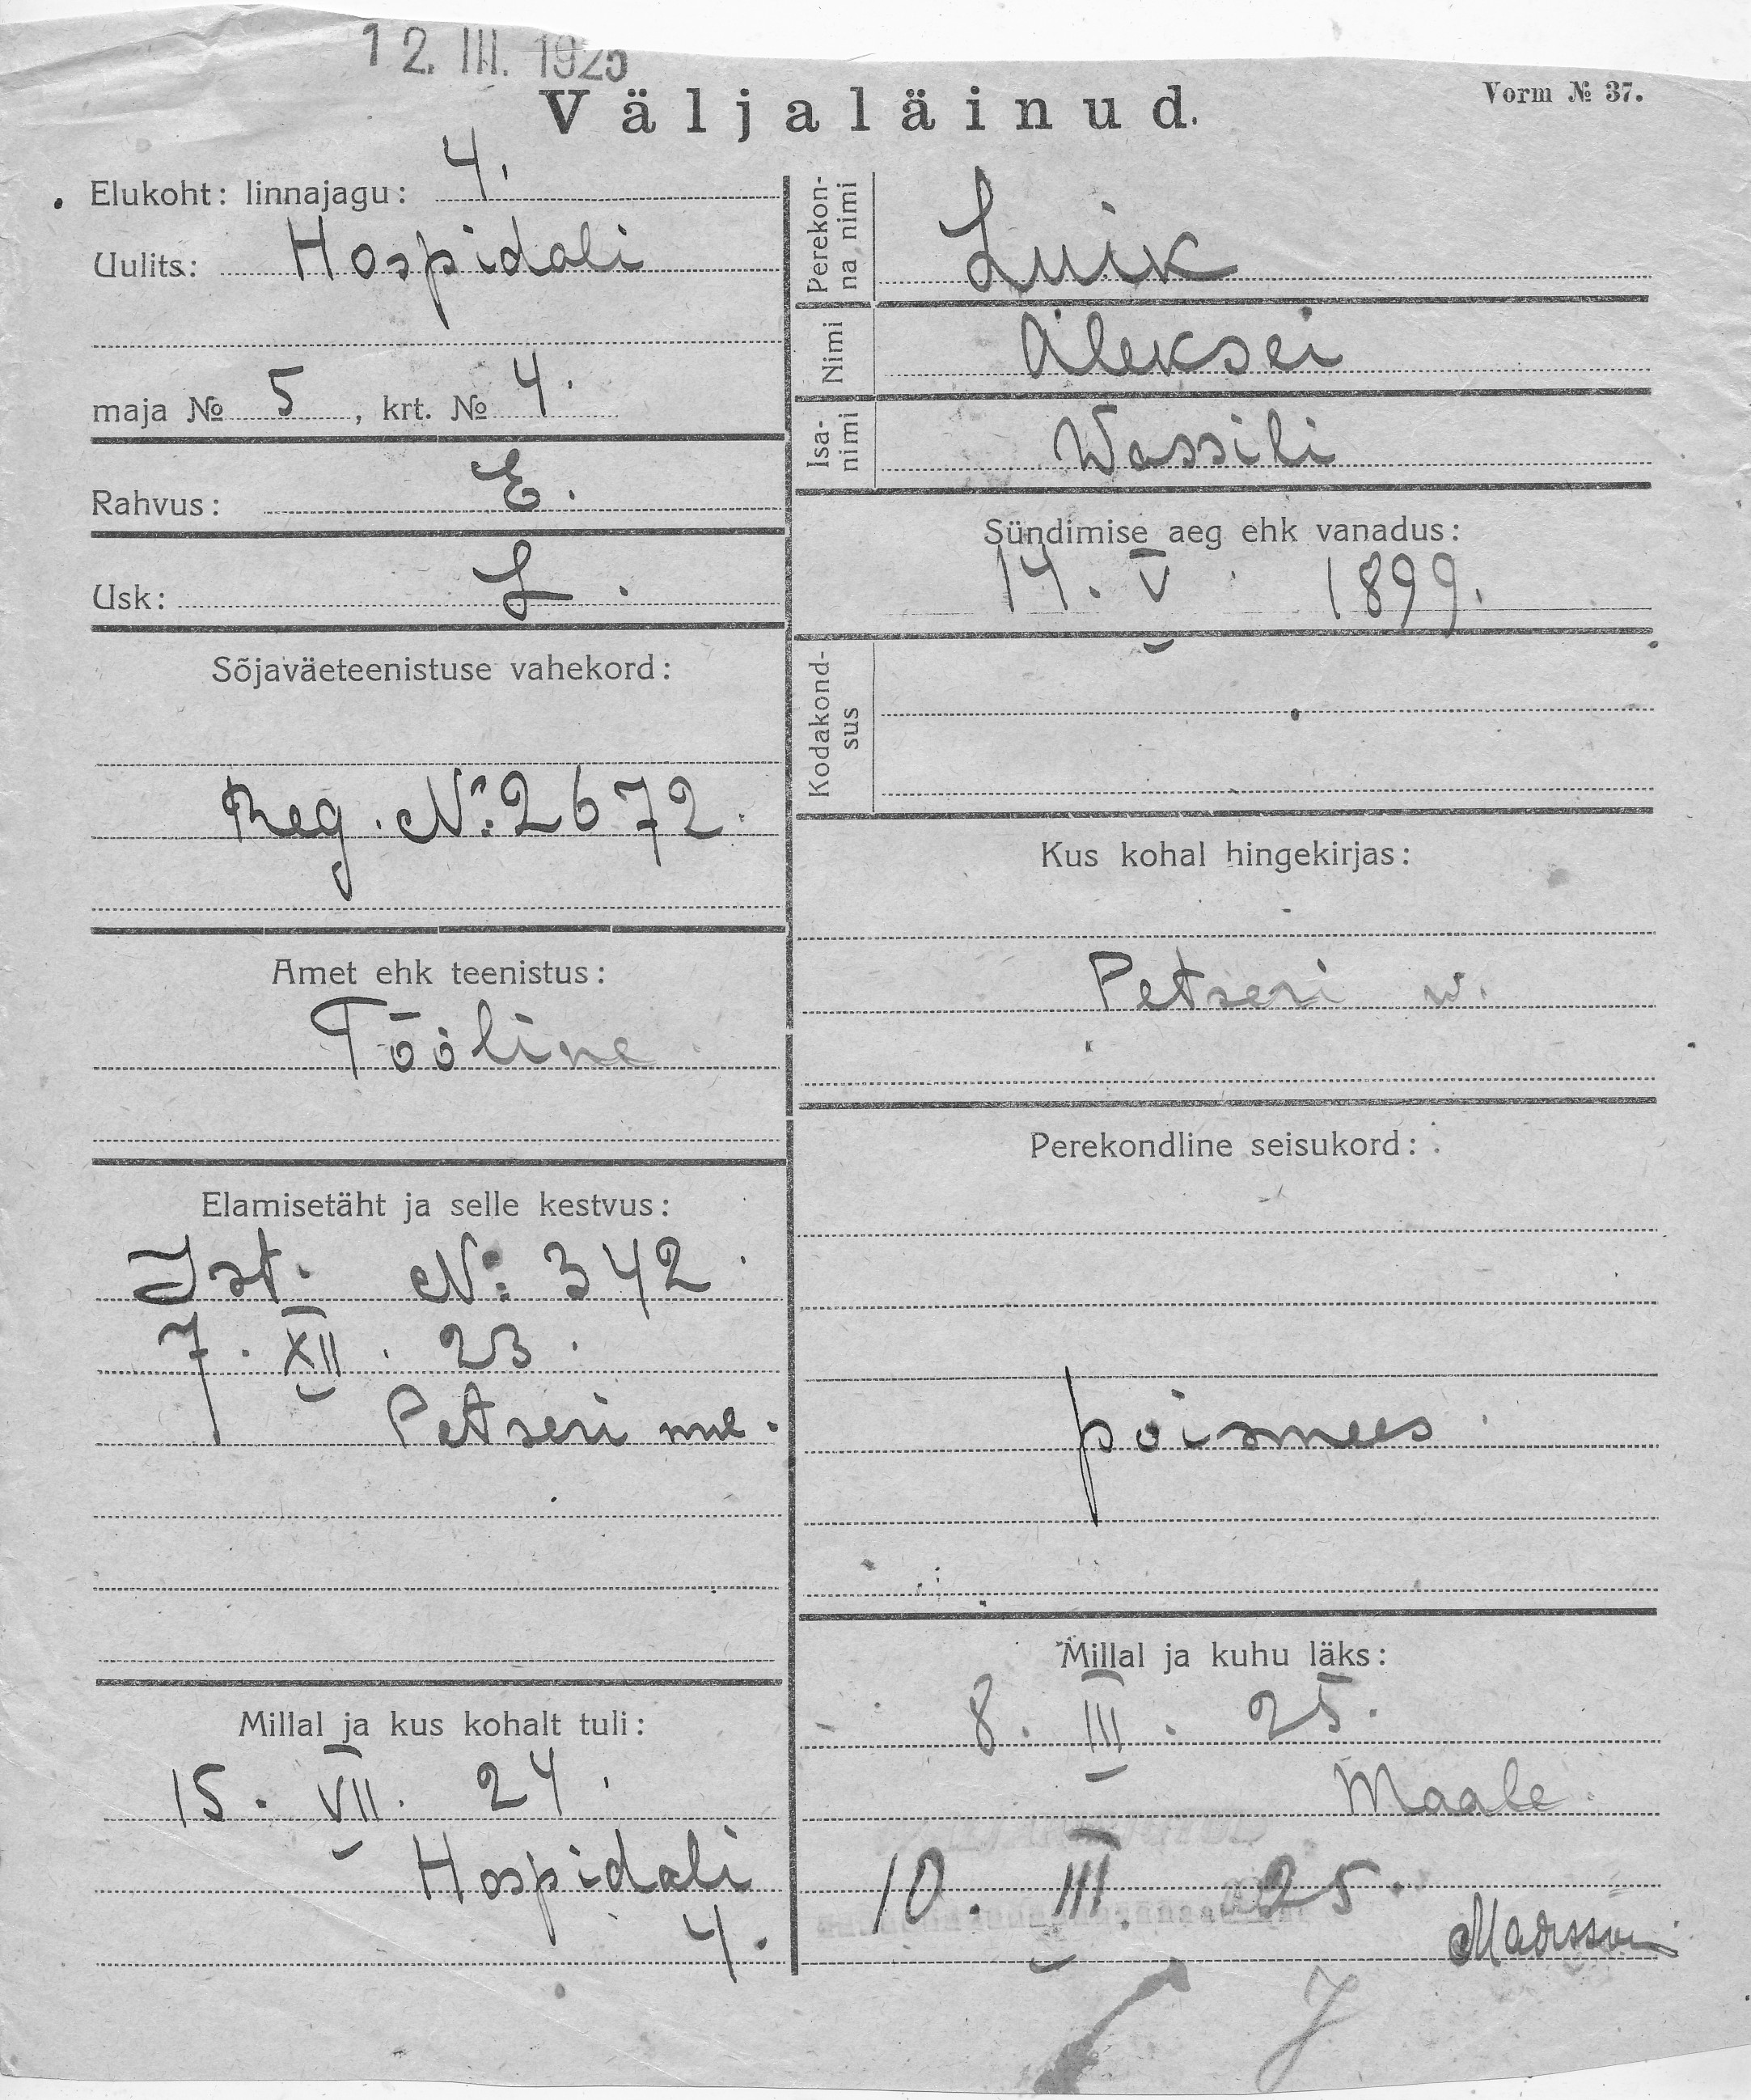 12. III. 1925
Väljaläinud.
Vorm № 37.
Elukoht: linnajagu: 4.
Uulits: Hospidali
maja № 5, krt. № 4.
Rahvus: E.
Usk: L.
Sõjaväeteenistuse vahekord:
Reg. №: 2672.
Amet ehk teenistus:
Tööline
Elamisetäht ja selle kestvus:
Ist. №: 342
7. XII. 23.
Petseri ml.
Millal ja kus kohalt tuli:
15. VII. 24.
Hospidali
4.
Perekon-
na nimi
Luik
Nimi
Aleksei
Isa-
nimi
Wassili
Sündimise aeg ehk vanadus:
14. V. 1899.
Kodakond-
sus
Kus kohal hingekirjas:
Petseri w.
Perekondline seisukord:
poismees
Millal ja kuhu läks:
8. III. 25.
Maale
10. III. 25.